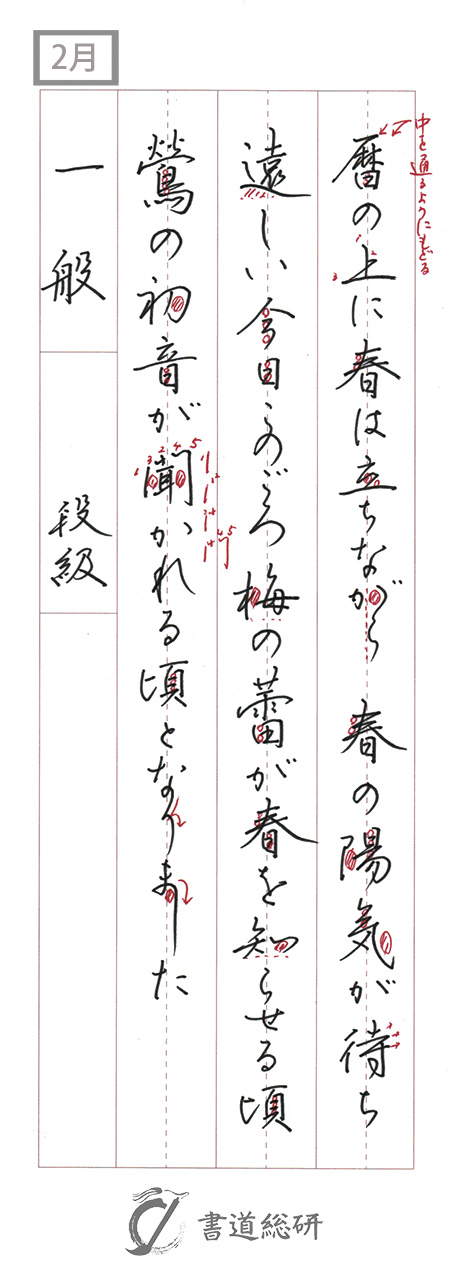 2月
中を通るようにもどる
暦の上に春は立ちながら 春の陽気が待ち
遠しい今日このごろ 梅の蕾が春を知らせる頃
鶯の初音が聞かれる頃となりました
一般
段級
書道総研